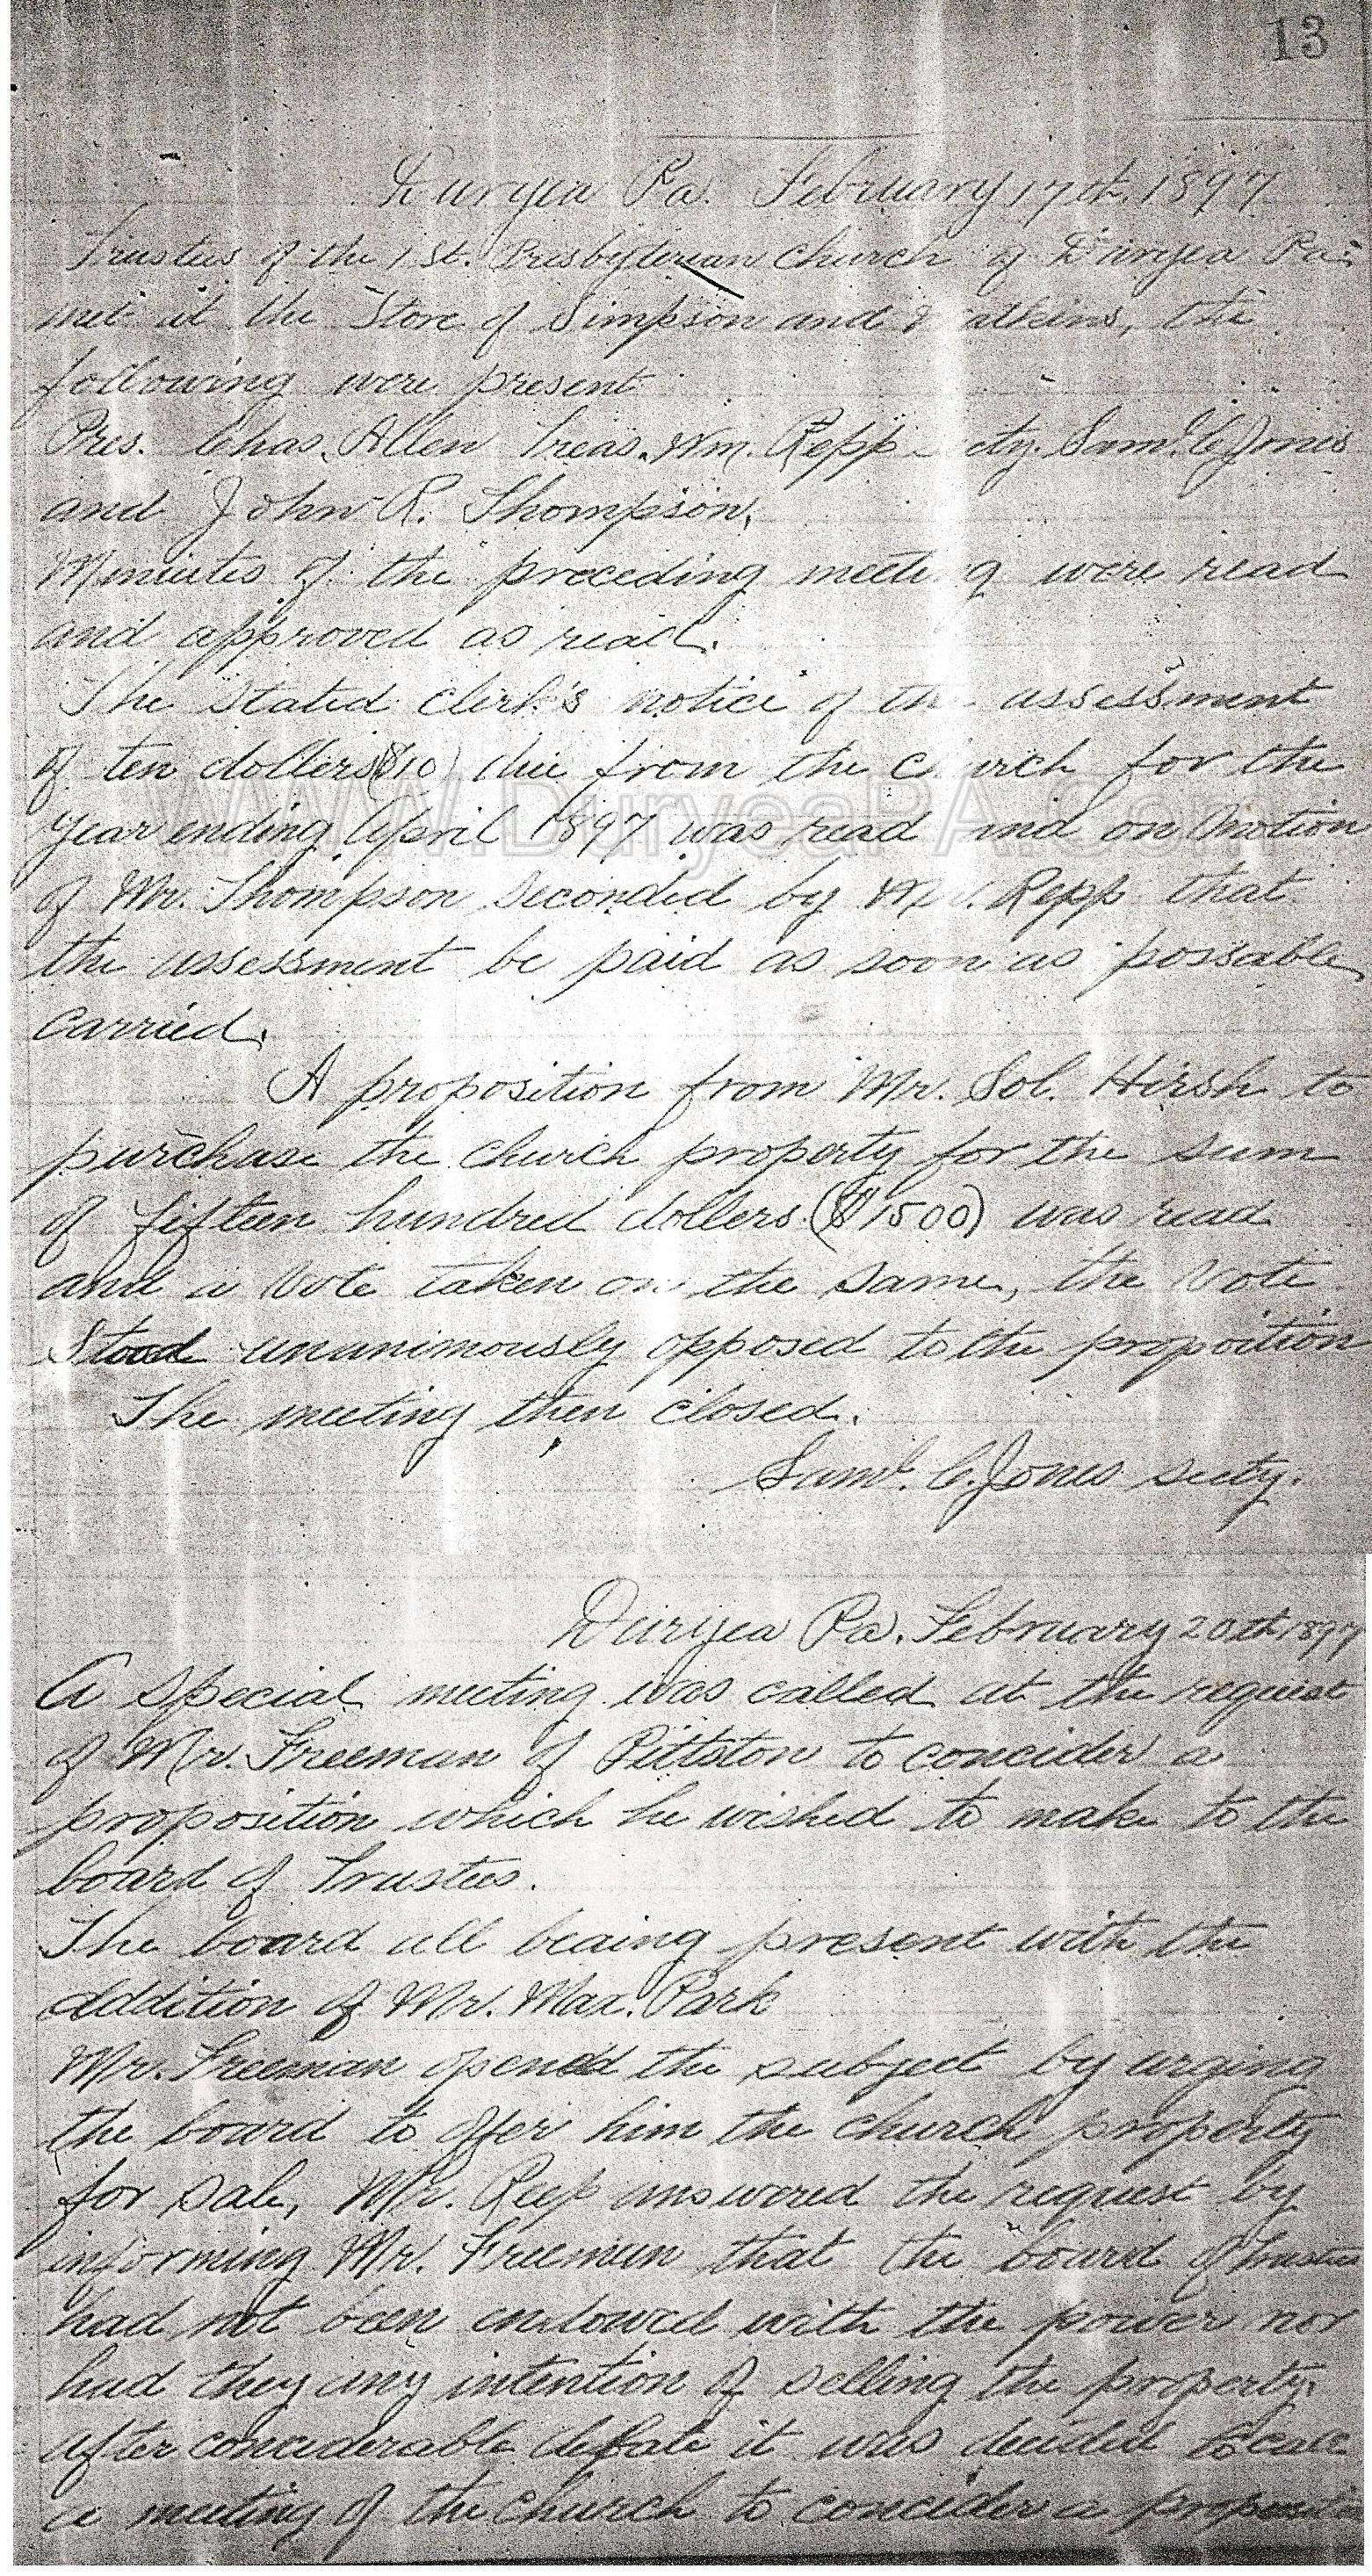 13
Duryea Pa. February 17th. 1897
Trustees of the 1st. Presbyterian Church of Duryea Pa.
met at the Store of Simpson and Watkins, the
following were present
Pres. Chas. Allen Treas. Wm. Repp cty. Saml. C. Jones
and John R. Thompson.
Minuites of the preceding meeting were read
and approved as read.
The Stated Clerk's notice of the assessment
of ten dollers ($10) due from the church for the
year ending April 1897 was read and on motion
of Mr. Thompson seconded by Mr. Repp that
the assessment be paid as soon as possable
carried.
A proposition from Mr. Sol. Hirsh to
purchase the church property for the sum
of fifteen hundred dollers ($1500) was read
and a Vote taken on the same, the Vote
Stood unanimously opposed to the proposition
The meeting then closed.
Saml. C. Jones secty.
Duryea Pa. February 20th 1897
A special meeting was called at the request
of Mr. Freeman of Pittston to concider a
proposition which he wished to make to the
board of Trustees.
The board all beaing present with the
addition of Mr. Max. Park
Mr. Freeman opened the subject by urging
the board to offer him the church property
for sale, Mr. Repp answered the request by
informing Mr. Freeman that the board of trustees
had not been endowed with the power nor
had they any intention of selling the property.
after conciderable debate it was decided to call
a meeting of the church to concider a proposition
WWW.DuryeaPA.Com